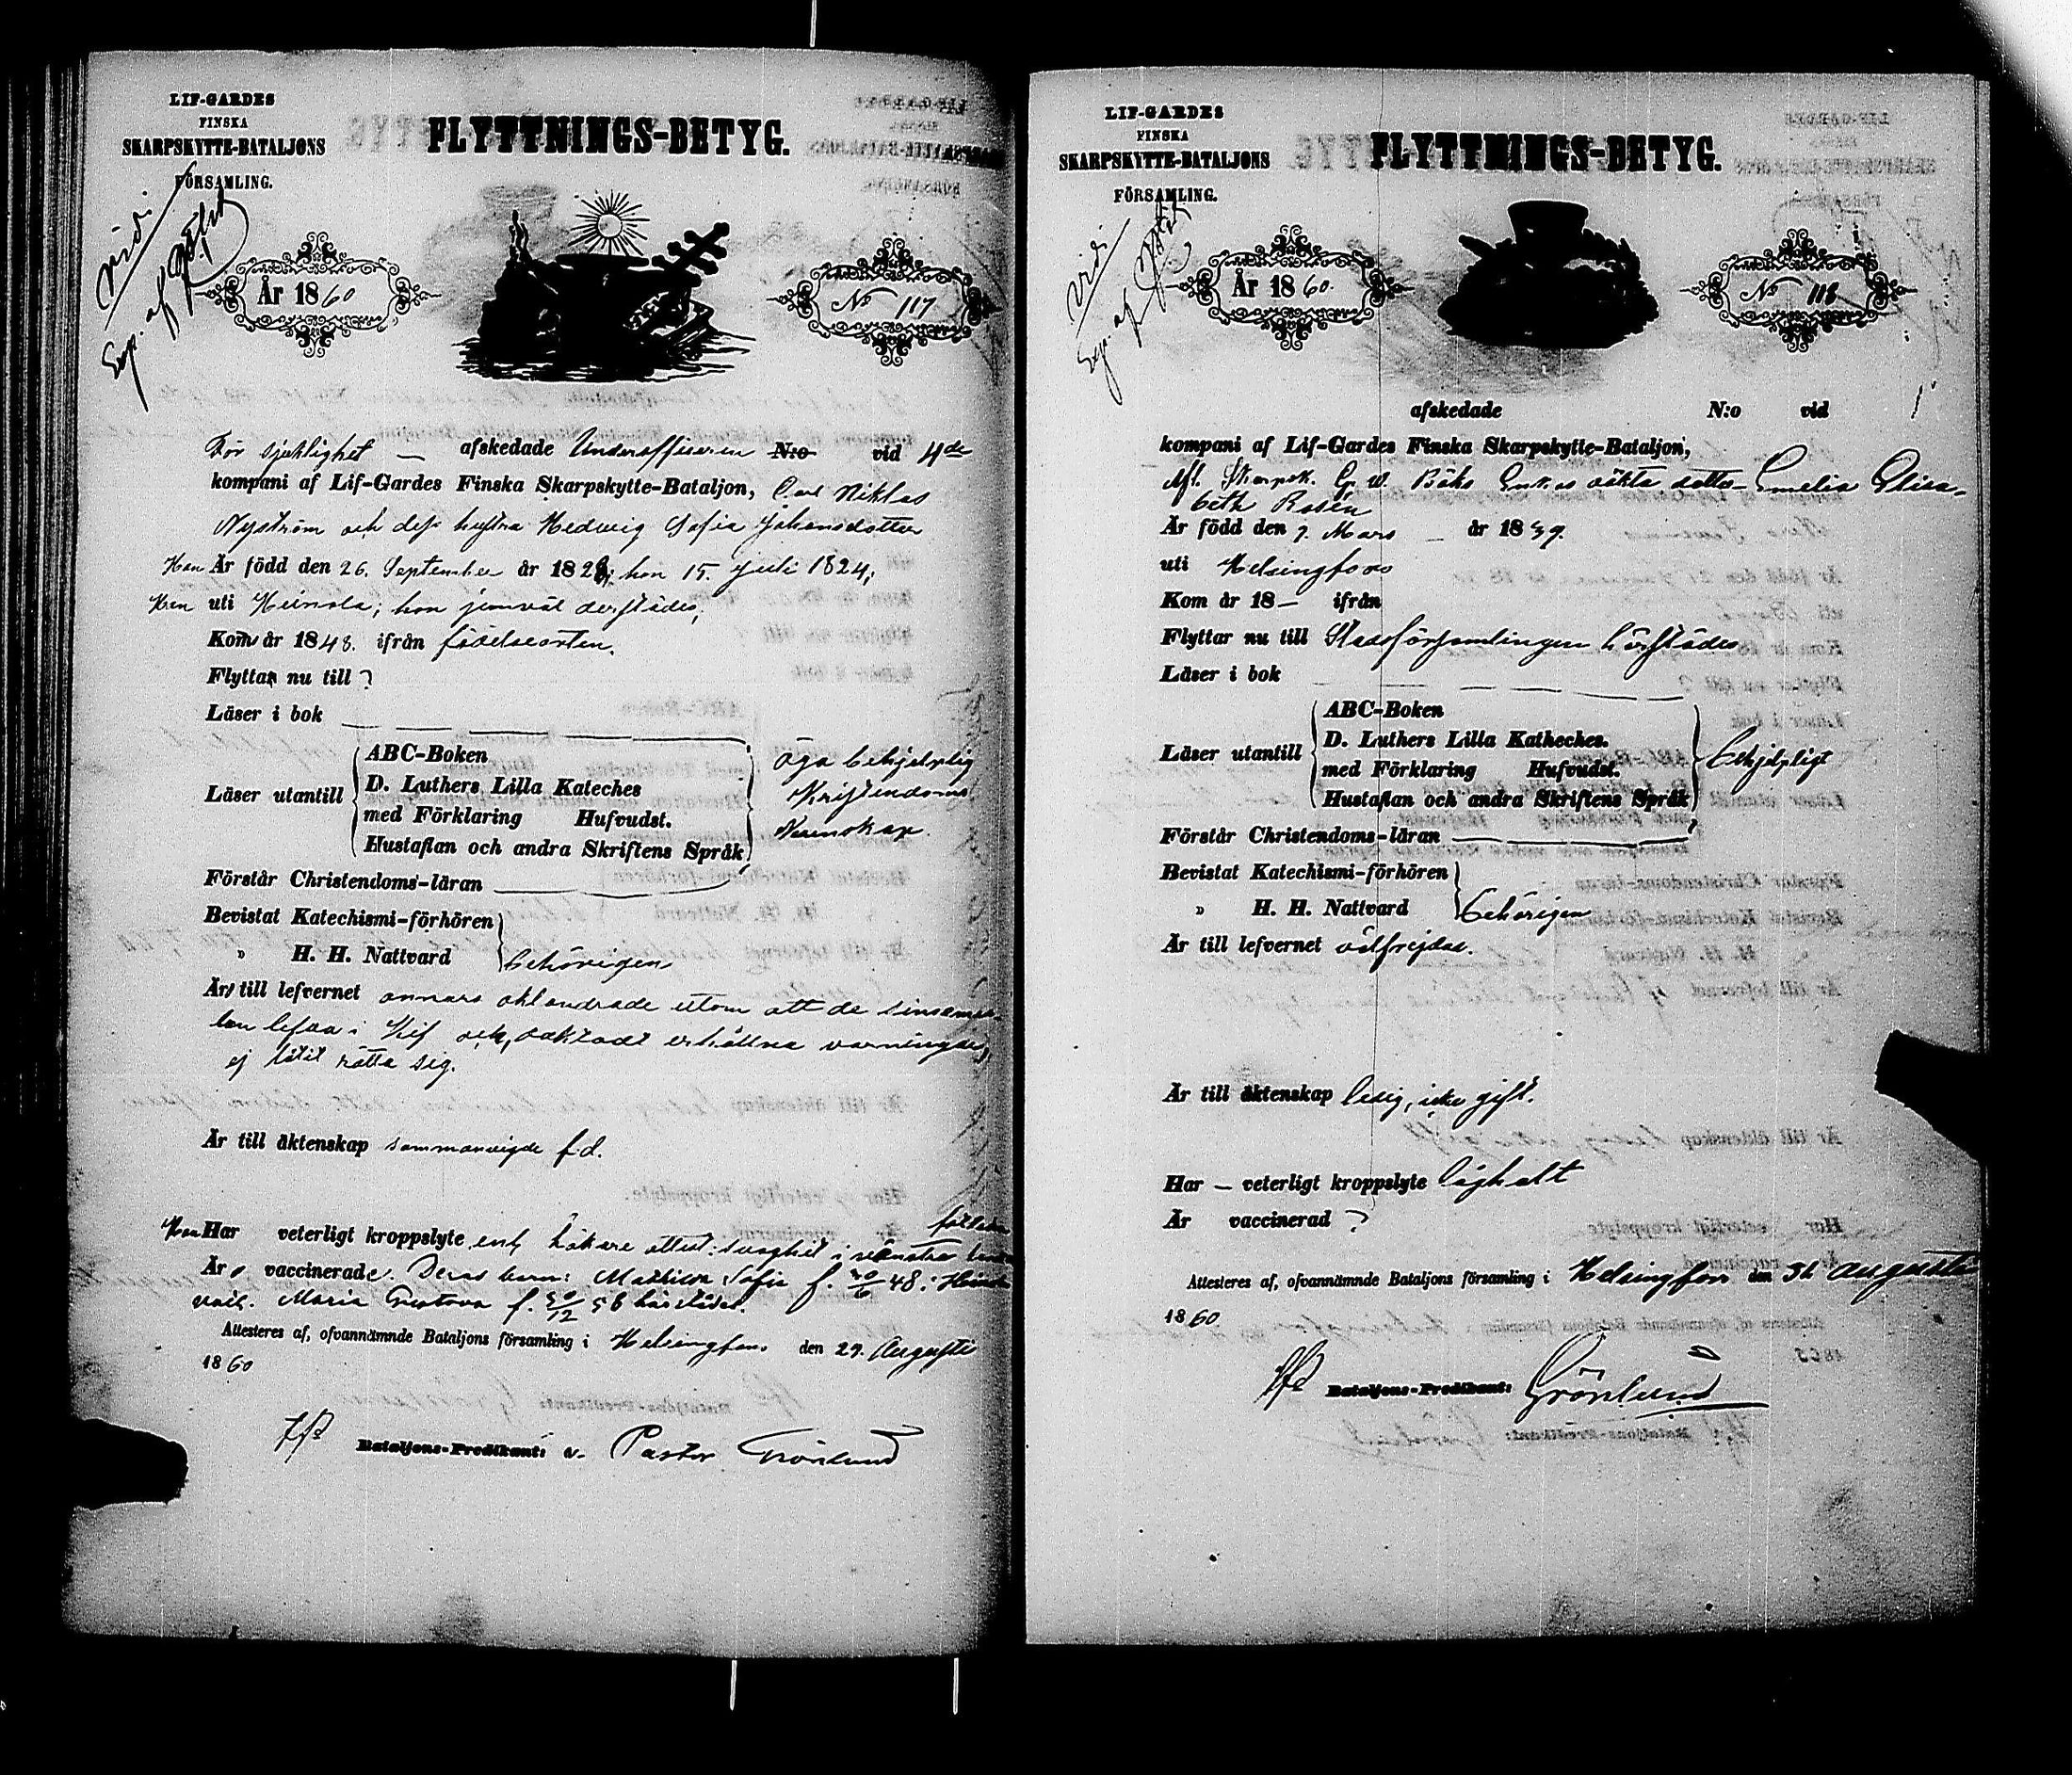 LIF-GARDES
FINSKA
SKARPSKYTTE-BATALJONS
FÖRSAMLING.
FLYTTNINGS-BETYG.
vid.
Exp. af
År 1860
No 117
För sjuklighet — afskedade Underofficeren N:o vid 4de
kompani af Lif-Gardes Finska Skarpskytte-Bataljon, Carl Niklas
Nyström och dess hustru Hedwig Sofia Johansdotter
Han Är född den 26. September år 182 hon 15. Juli 1824;
Han uti Heinola; hon jemväl derstädes;
Kom år 1848. ifrån födelseorten.
Flyttar nu till ?
Läser i bok
Läser utantill
ABC-Boken
D. Luthers Lilla Kateches
med Förklaring Hufvudst.
Hustaflan och andra Skriftens Språk
Äga behjelplig
Kristendoms
Kunskap.
Förstår Christendoms-läran
Bevistat Katechismi-förhören
" H. H. Nattvard
behörigen
Är till lefvernet annars oklandrade utom att de sinsemel-
lan lefva i Kif och, oaktadt erhållna varningar,
ej låtit rätta sig.
Är till äktenskap sammanvigde f.d.
Han Har veterligt kroppslyte enl. läkare attest: svaghet i venstra
Är vaccinerade. Deras barn: Mathilda Sofia f. 48 i
Maria Gustava f. 30/12 58 härstädes.
Attesteres af, ofvannämnde Bataljons församling i Helsingfors den 29. Augusti
1860
Bataljons-Predikant: v. Pastor Grönlund
LIF-GARDES
FINSKA
SKARPSKYTTE-BATALJONS
FÖRSAMLING.
FLYTTNINGS-BETYG.
vid.
Exp. af
År 1860.
No 118
afskedade N:o vid
kompani af Lif-Gardes Finska Skarpskytte-Bataljon,
Afl. Skarpsk. Enkas äkta dotter Emelia Elisa-
beth Rosén
Är född den 7. Mars år 1839.
uti Helsingfors
Kom år 18— ifrån
Flyttar nu till Stadsförsamlingen härstädes
Läser i bok
Läser utantill
ABC-Boken
D. Luthers Lilla Katheches.
med Förklaring Hufvudst.
Hustaflan och andra Skriftens Språk
behjelpligt
Förstår Christendoms-läran
Bevistat Katechismi-förhören
" H. H. Nattvard
behörigen
Är till lefvernet välfrejdad.
Är till äktenskap ledig, icke gift.
Har — veterligt kroppslyte låghalt
Är vaccinerad ?
Attesteres af, ofvannämnde Bataljons församling i Helsingfors den 31 Augusti
1860
Bataljons-Predikant: Grönlund